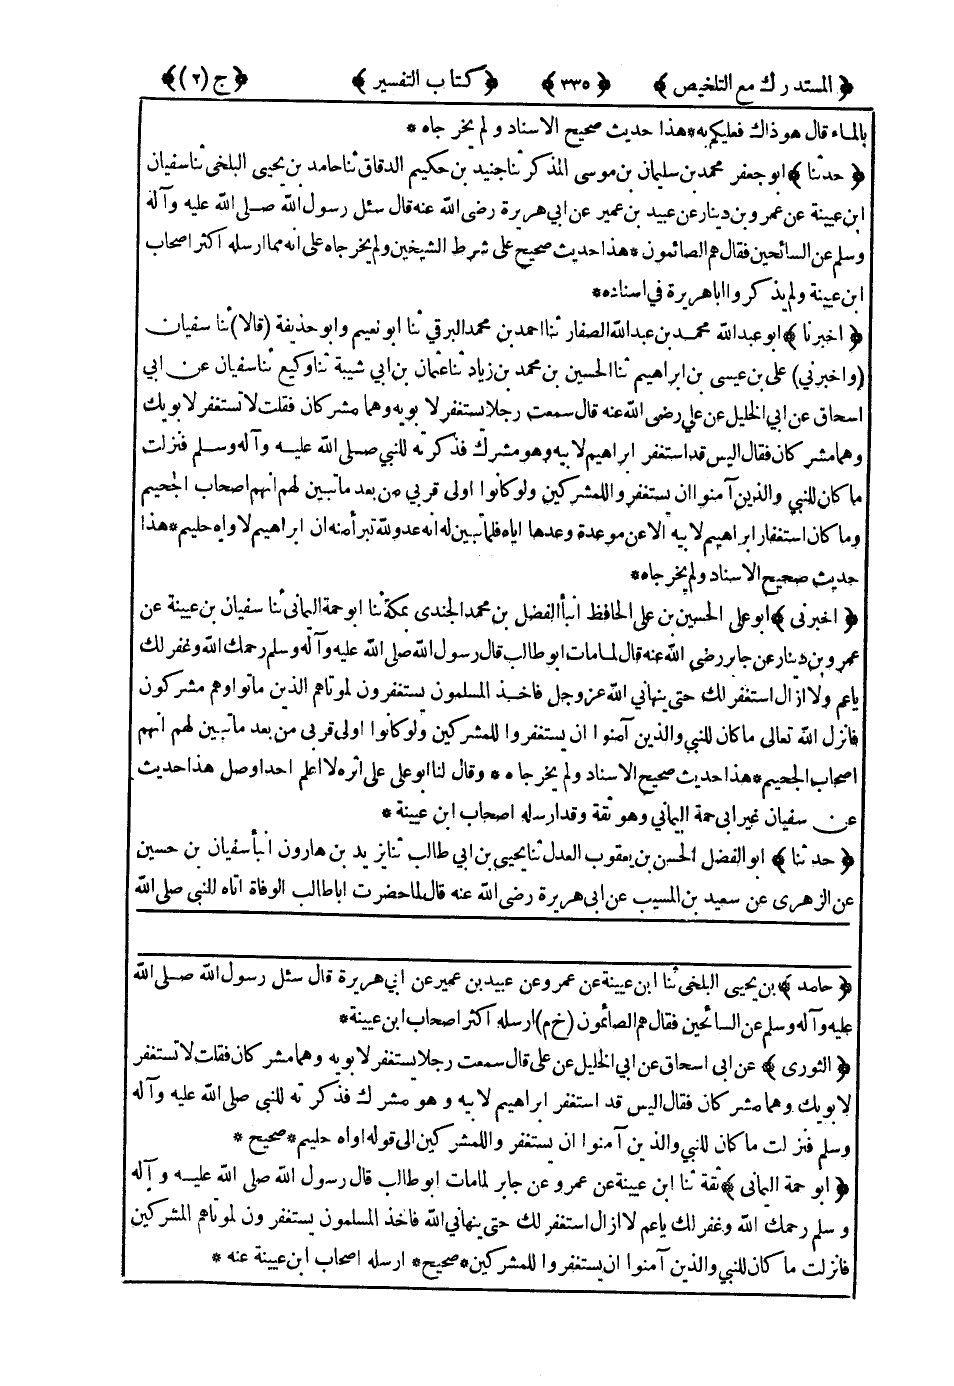 ﴿ المستدرك مع التلخيص ﴾ ﴿ ٣٣٥ ﴾ ﴿ كتاب التفسير ﴾ ﴿ ج (٢) ﴾
بالماء قال هو ذاك فعليكم به * هذا حديث صحيح الاسناد ولم يخرجاه *
﴿ حدثنا ﴾ ابو جعفر محمد بن سليمان بن موسى المذكر ثنا جنيد بن حكيم الدقاق ثنا حامد بن يحيى البلخى ثنا سفيان
ابن عيينة عن عمرو بن دينار عن عبيد بن عمير عن ابي هريرة رضى الله عنه قال سئل رسول الله صلى الله عليه وآله
وسلم عن السائحين فقال هم الصائمون * هذا حديث صحيح على شرط الشيخين ولم يخرجاه على انه مما ارسله اكثر اصحاب
ابن عيينة ولم يذكروا ابا هريرة في اسناده *
﴿ اخبرنا ﴾ ابو عبدالله محمد بن عبدالله الصفار ثنا احمد بن محمد البرقي ثنا ابو نعيم وابو حذيفة (قالا) ثنا سفيان
(واخبرني) على بن عيسى بن ابراهيم ثنا الحسين بن محمد بن زياد ثنا عثمان بن ابي شيبة ثنا وكيع ثنا سفيان عن ابي
اسحاق عن ابي الخليل عن علي رضى الله عنه قال سمعت رجلا يستغفر لابويه وهما مشركان فقلت لا تستغفر لابويك
وهما مشركان فقال اليس قد استغفر ابراهيم لابيه وهو مشرك فذكرته للنبي صلى الله عليه وآله وسلم فنزلت
ما كان للنبي والذين آمنوا ان يستغفروا للمشركين ولو كانوا اولى قربي من بعد ما تبين لهم انهم اصحاب الجحيم
وما كان استغفار ابراهيم لابيه الا عن موعدة وعدها اياه فلما تبين له انه عدو لله تبرأ منه ان ابراهيم لاواه حليم * هذا
حديث صحيح الاسناد ولم يخرجاه *
﴿ اخبرنى ﴾ ابو على الحسين بن على الحافظ انبأ الفضل بن محمد الجندى بمكة ثنا ابو حمة اليمانى ثنا سفيان بن عيينة عن
عمرو بن دينار عن جابر رضى الله عنه قال لما مات ابو طالب قال رسول الله صلى الله عليه وآله وسلم رحمك الله وغفر لك
ياعم ولا ازال استغفر لك حتى ينهاني الله عز وجل فاخذ المسلمون يستغفرون لموتاهم الذين ماتوا وهم مشركون
فانزل الله تعالى ما كان للنبي والذين آمنوا ان يستغفروا للمشركين ولو كانوا اولى قربى من بعد ما تبين لهم انهم
اصحاب الجحيم * هذا حديث صحيح الاسناد ولم يخرجاه * وقال لنا ابو على على اثره لا اعلم احدا وصل هذا حديث
عن سفيان غير ابى حمة اليماني وهو ثقة وقد ارسله اصحاب ابن عيينة *
﴿ حدثنا ﴾ ابو الفضل الحسن بن يعقوب العدل ثنا يحيى بن ابي طالب ثنا يزيد بن هارون انبأ سفيان بن حسين
عن الزهرى عن سعيد بن المسيب عن ابى هريرة رضى الله عنه قال لما حضرت ابا طالب الوفاة اتاه للنبى صلى الله
﴿ حامد ﴾ بن يحيى البلخى ثنا ابن عيينة عن عمرو عن عبيد بن عمير عن ابي هريرة قال سئل رسول الله صلى الله
عليه وآله وسلم عن السائحين فقال هم الصائمون (خ م) ارسله اكثر اصحاب ابن عيينة *
﴿ الثورى ﴾ عن ابى اسحاق عن ابي الخليل عن على قال سمعت رجلا يستغفر لابويه وهما مشركان فقلت لا تستغفر
لابويك وهما مشركان فقال اليس قد استغفر ابراهيم لابيه و هو مشرك فذكرته للنبي صلى الله عليه وآله
وسلم فنزلت ما كان للنبي والذين آمنوا ان يستغفروا للمشركين الى قوله اواه حليم * صحيح *
﴿ ابو حمة اليمانى ﴾ ثقة ثنا ابن عيينة عن عمرو عن جابر لما مات ابو طالب قال رسول الله صلى الله عليه وآله
وسلم رحمك الله وغفر لك ياعم لا ازال استغفر لك حتى ينهاني الله فاخذ المسلمون يستغفرون لموتاهم المشركين
فانزلت ما كان للنبي والذين آمنوا ان يستغفروا للمشركين * صحيح * ارسله اصحاب ابن عيينة عنه *